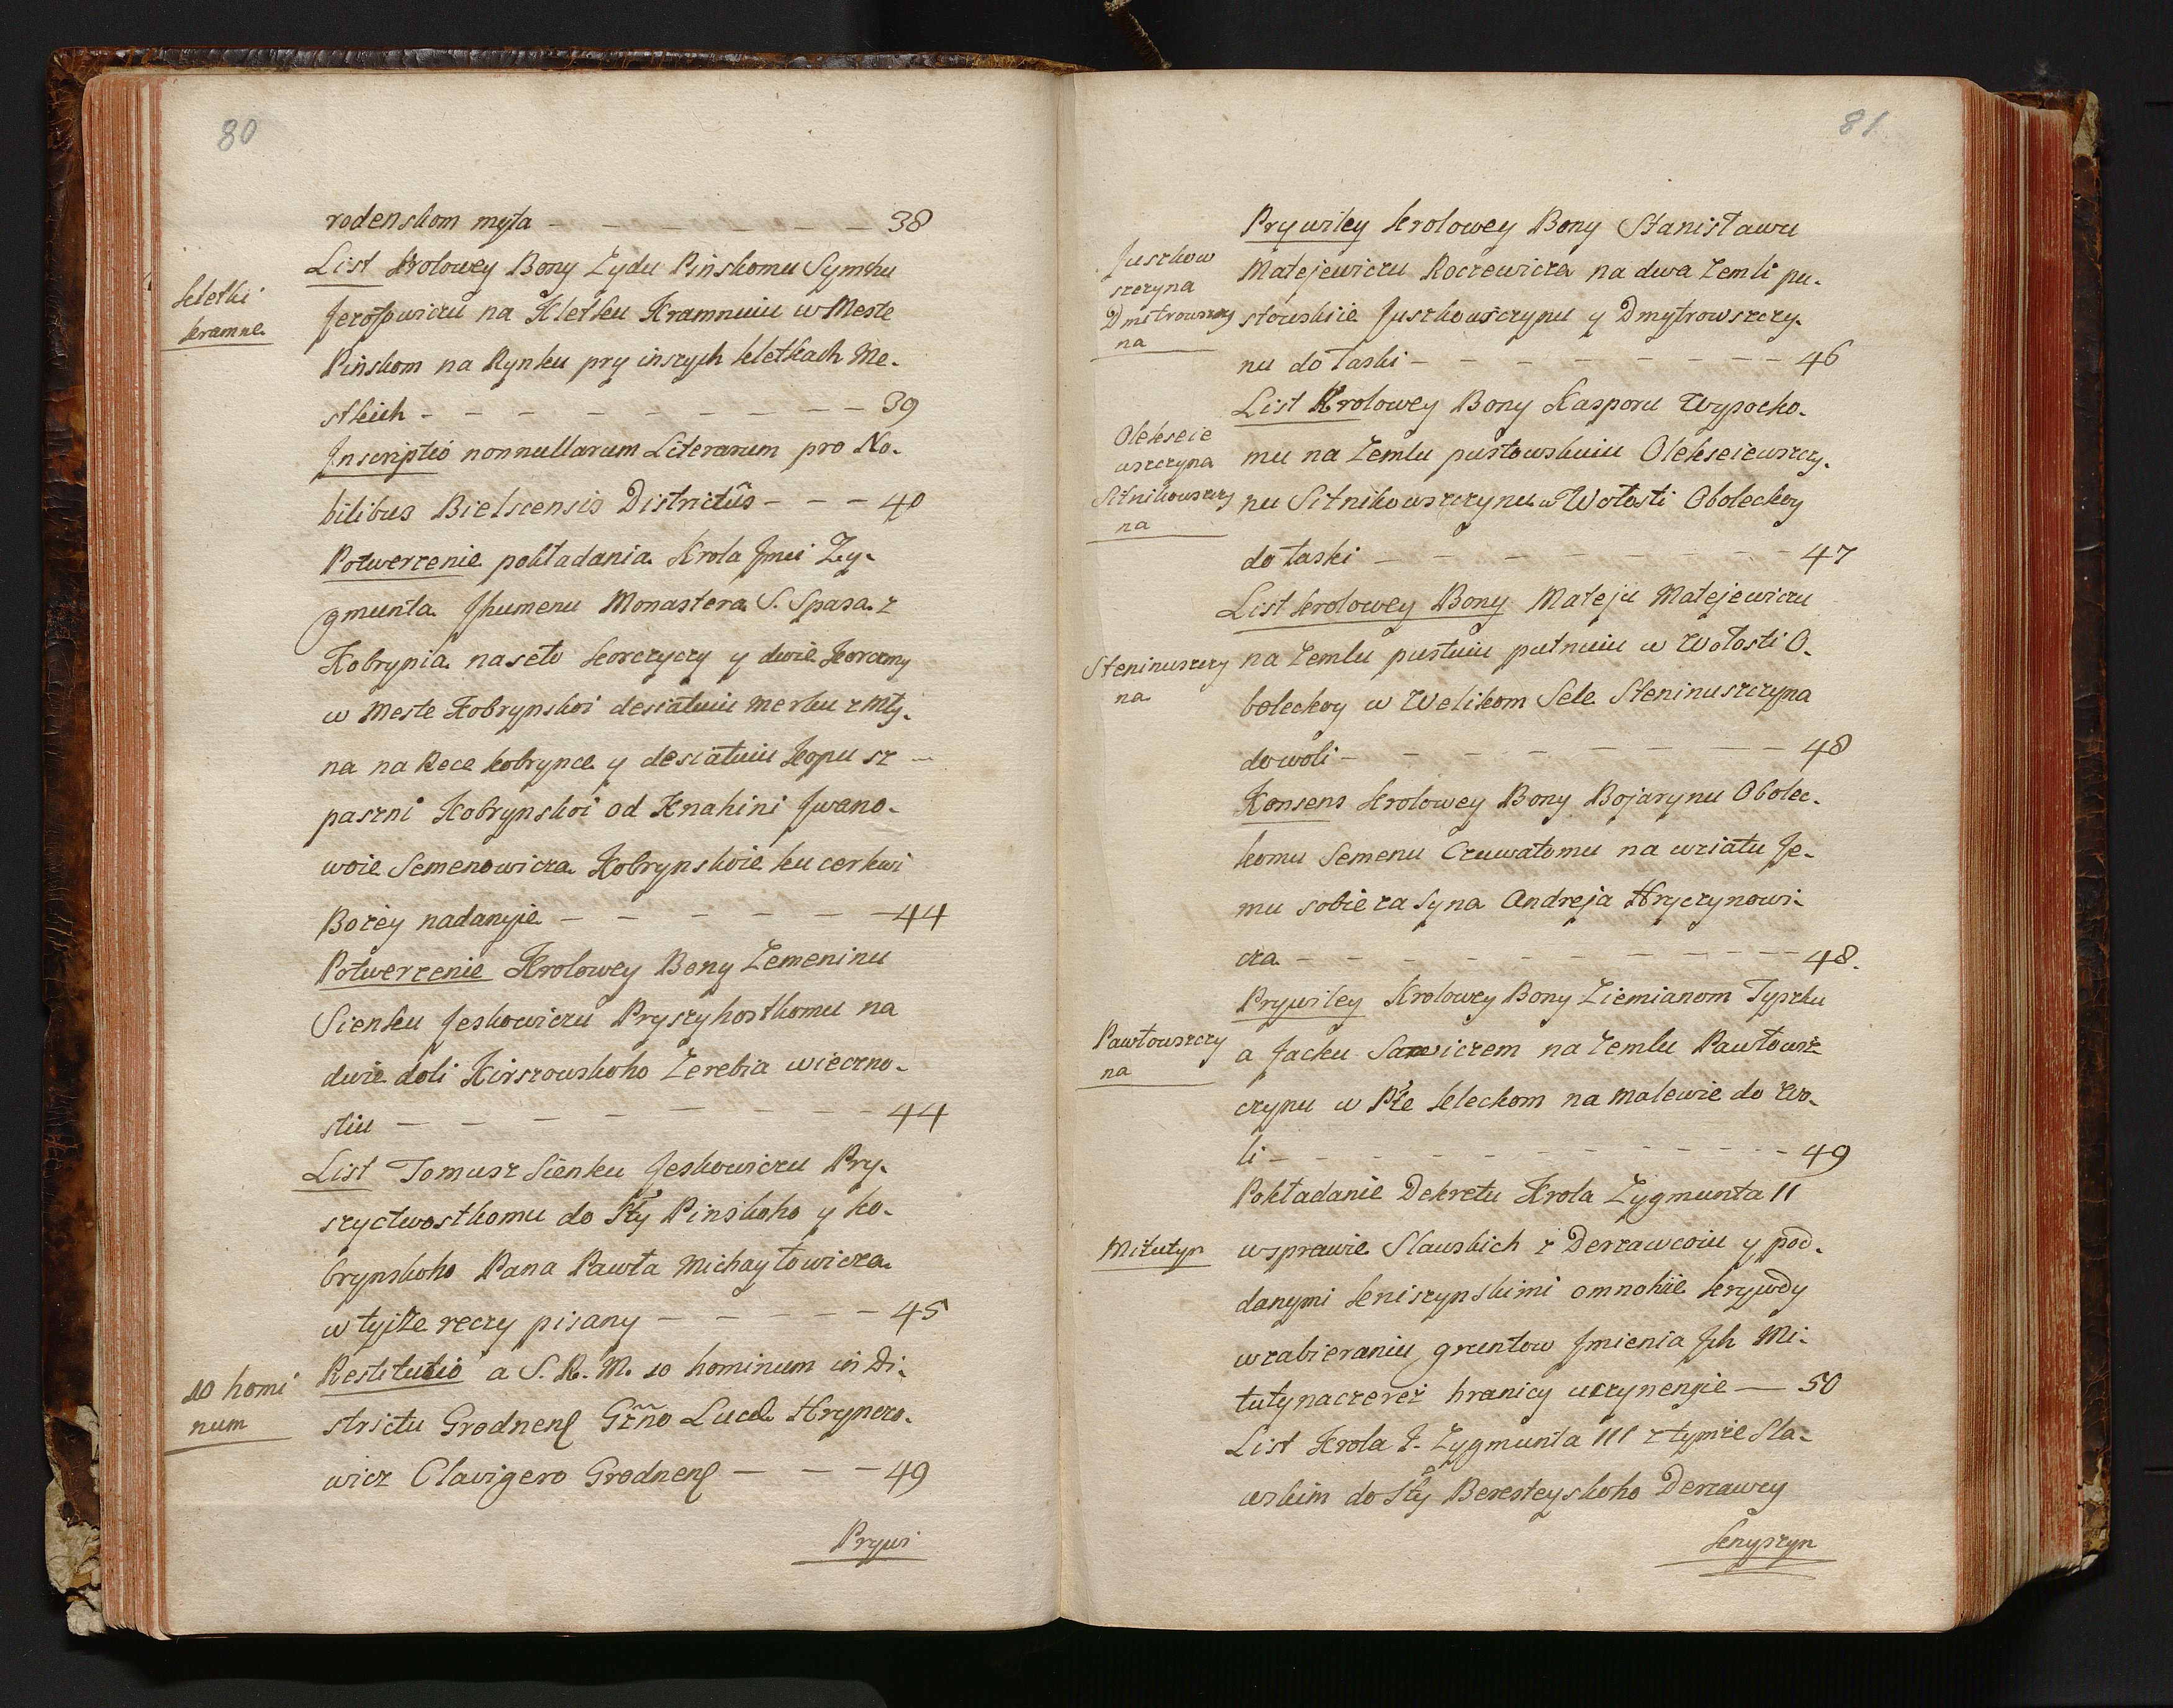 80
rodenskom myta - - - - - - - 38
List Krolowey Bony Żydu Pinskomu Symchu
kletki
kramne
na Kletku Kramnuiu w Meste
Pinskom na Rynku pry inszych kletkach Me-
stkich - - - - - - - - - 39
Inscriptio nonnullarum Literarum pro No-
bilibus Bielscensis Districtûs - - - 40
Potwerzenie pokładania Krola Jmci Zy-
gmunta Ihumenu Monastera S. Spasa z
Kobrynia na seło korczyczy y dwie korczmy
w Meste Kobrynskoi desiatuiu merku z Mły-
na na Rece kobrynce y desiatuiu kopu sz
paszni Kobrynskoi od Knahini Jwano-
woie Semenowicza Kobrynskoie ku cerkwi
Bożey nadanyie - - - - - - - 44
Potwerzenie Krolowey Bony Zemeninu
Sienku Jeskowiczu Pryszyhostkomu na
dwie doli Kirszowskoho Żerebia wieczno-
stiu - - - - - - - - 44
List Tomusz Sienku Jeskowiczu Pry-
szyctwostkomu do Sty Pinskoho y ko-
brynskoho Pana Pawła Michayłowicza
w tyjże reczy pisany - - - - 45
10 homi
num
Restitutio a S. R. M. 10 hominum in Di-
strictu Grodnen Gzño Lucæ Hrynco-
wicz Clavigero Grodnen - - - 49
Prywi
81
Prywiley krolowey Bony Stanisławu
Juszkow
szczyna
Dmitrowszczy
na
Matejewiczu Roczewicza na dwa Zemli pu-
stowskiie Juszkowszczynu y Dmytrowszczy-
nu do łaski - - - - - - - - 46
List Krolowey Bony Kasporu Wypocko-
Olekseie
wszczyna
Sitnikowszczy
na
mu na Zemlu pustowskuiu Olekseiewszczy-
nu Sitnikowszczynu w Wołosti Oboleckoy
do łaski - - - - - - - - 47
List krolowey Bony Mateju Matejewiczu
Steninuszczy
na
na Zemlu pustuiu putnuiu w Wołosti O-
boleckoy w Welikom Sele Steninuszczyna
do woli - - - - - - - - 48
Konsens krolowey Bony Bojarynu Obolec-
komu Semenu Czuwatomu na wziatu Je-
mu sobie za Syna Andreja Hryczynowi-
cza - - - - - - - - - 48.
Prywiley Krolowey Bony Ziemianom Tyszku
Pawłowszczy
na
a Jacku Sawiczem na Zemlu Pawłowsz-
czynu w Pte kleckom na malewie do wo-
li - - - - - - - - - - 49
Pokładanie Dekretu Krola Zygmunta II
Miłutyn
w sprawie Sławskich z Derzawcoiu y pod-
danymi kniszynskimi o mnohiie krywdy
w zabieraniu gruntow Jmienia Jch Mi-
tutyna czerez hranicy uczynengie — 50
List Krola J. Zygmunta III z tymże Sla-
wskim do Sty Beresteyskoho Derzawcy
knyszyn